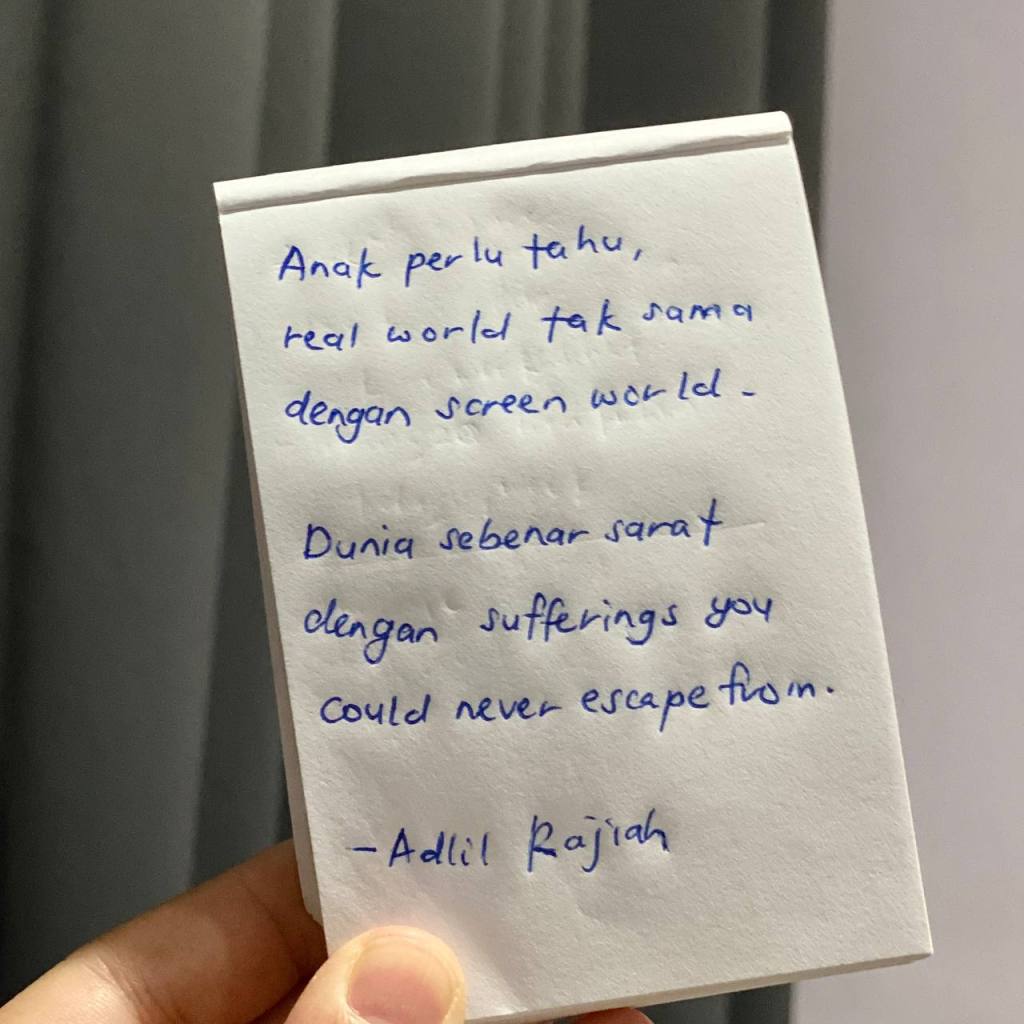 Anak perlu tahu,
real world tak sama
dengan screen world.
Dunia sebenar sarat
dengan sufferings you
could never escape from.
- Adlil Rajiah